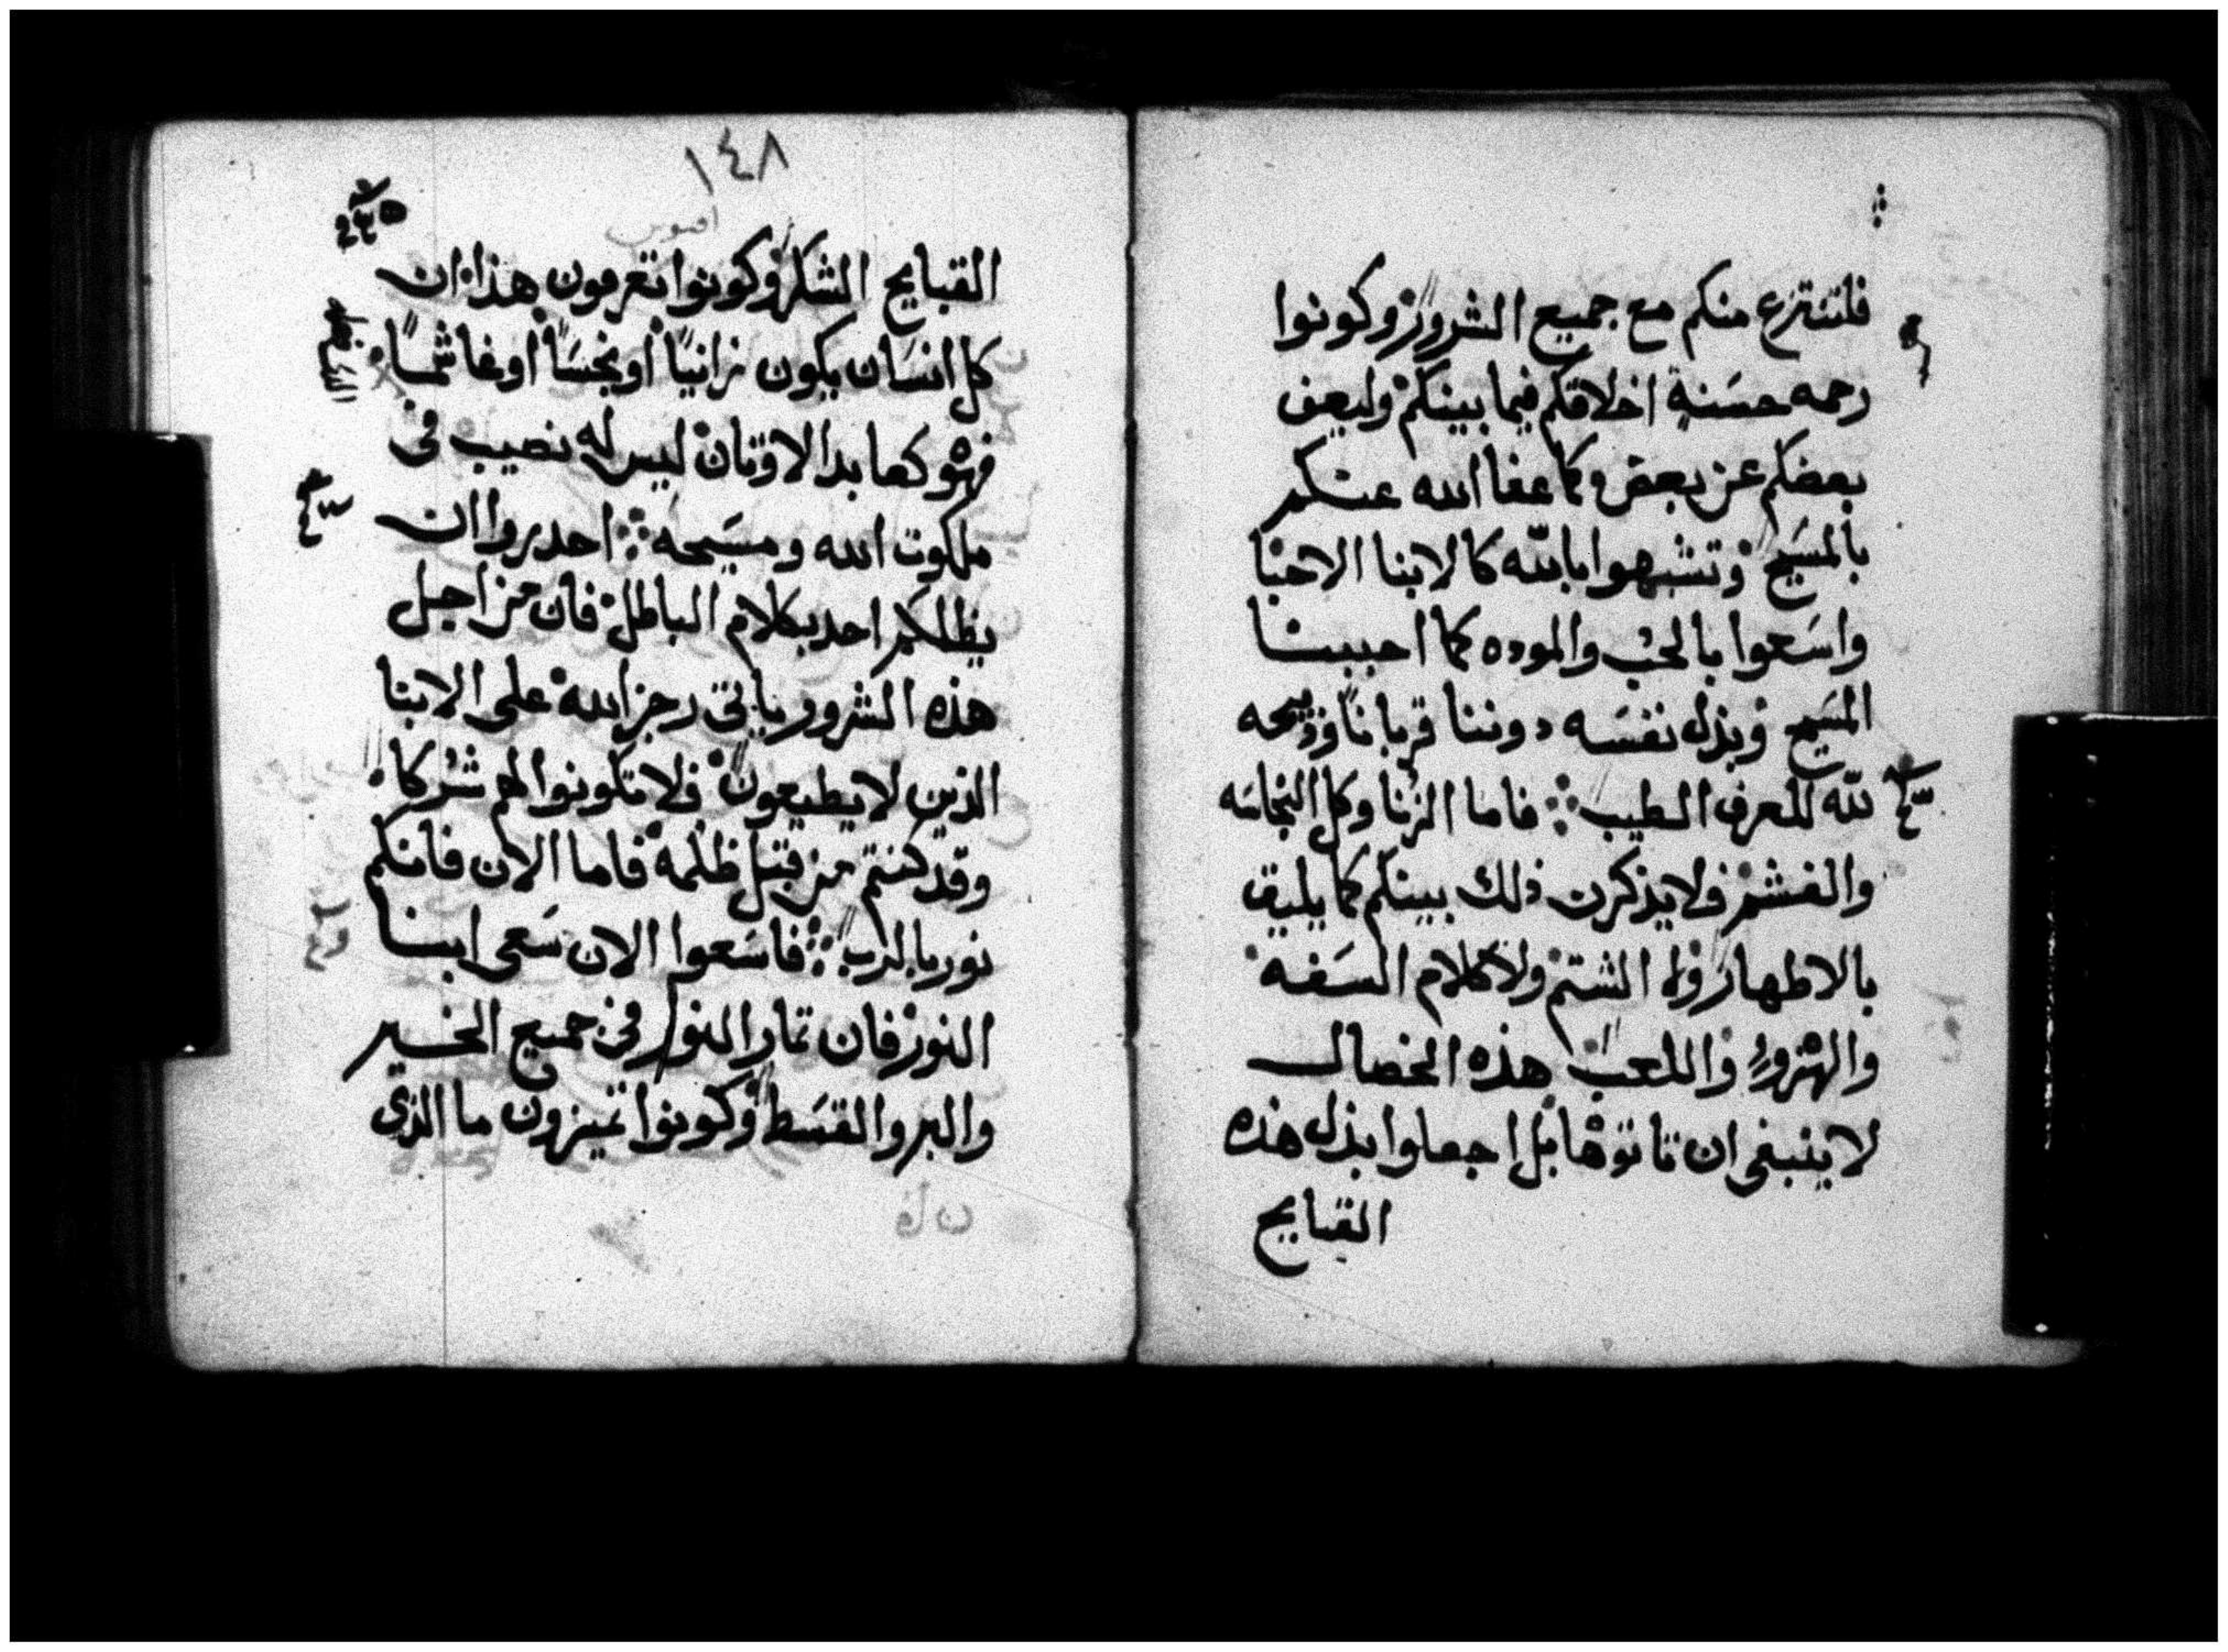 فلتنتزع منكم مع جميع الشرور وكونوا
رحمه حسنة اخلاقكم فيما بينكم وليعف
بعضكم عن بعض وكما عفا الله عنكم
بالمسيح وتشبهوا بالله كالابنا الاحبا
واسعوا بالحب والموده كما احببنا
المسيح وبذل نفسه دوننا قربانا وذبيحه
لله للعرف الطيب فاما الزنا وكل النجاسه
والغشم فلا يذكرن ذلك بينكم كما يليق
بالاطهار ولا الشتم ولا كلام السفه
والهزو واللعب هذه الخصال
لا ينبغى ان تاتوها بل اجعلوا بذل هذه
القبايح
١٤٨
افسوس
القبايح الشكر وكونوا تعرفون هذا ان
كل انسان يكون زانيا او نجسا او غاشما
فهو كعابد الاوثان ليس له نصيب فى
ملكوت الله ومسيحه احدروا ان
يظلكم احد بكلام الباطل فان من اجل
هذه الشرور ياتى رجز الله على الابنا
الذين لا يطيعون فلا تكونوا لهم شركا
وقد كنتم من قبل ظلمه فاما الان فانكم
نور بالرب فاسعوا الان سعى ابنا
النور فان تمار النور فى جميع الخير
والبر والقسط وكونوا تميزون ما الذى